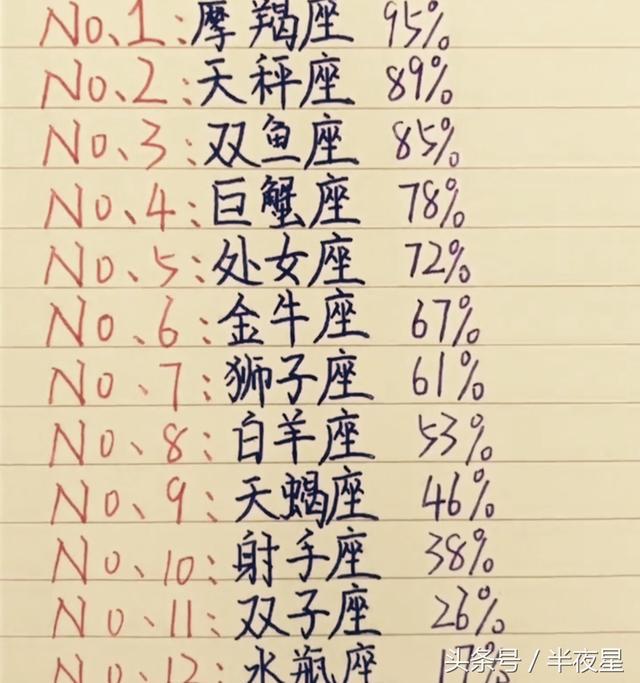 No.1:摩羯座 95%
No.2:天秤座 89%
No.3:双鱼座 85%
No.4:巨蟹座 78%
No.5:处女座 72%
No.6:金牛座 67%
No.7:狮子座 61%
No.8:白羊座 53%
No.9:天蝎座 46%
No.10:射手座 38%
No.11:双子座 26%
No.12:水瓶座 17%
头条号/半夜星